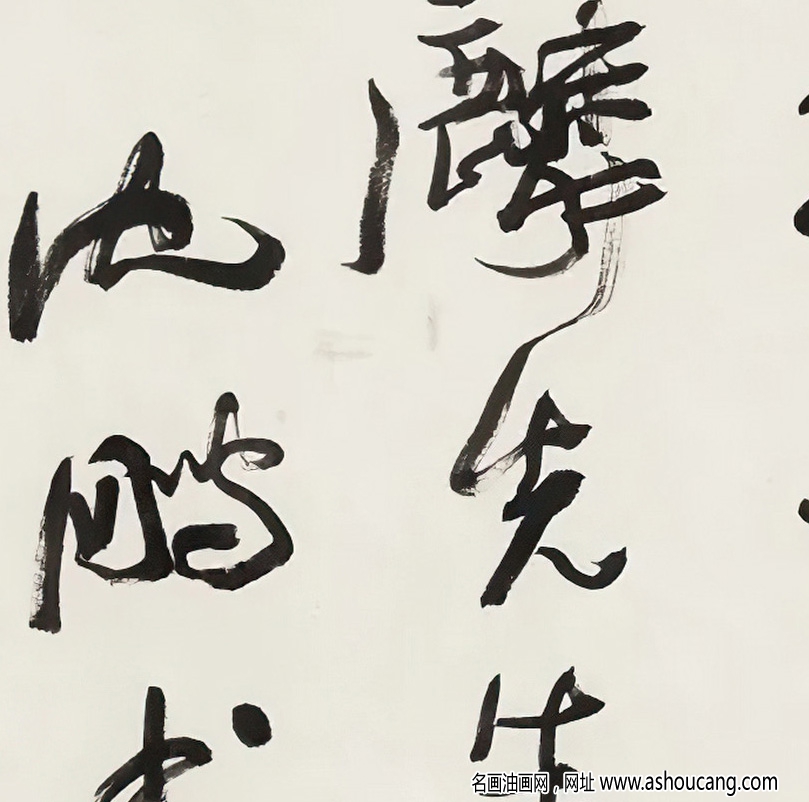 先生
沈鹏书
名画油画网，网址 www.ashoucang.com